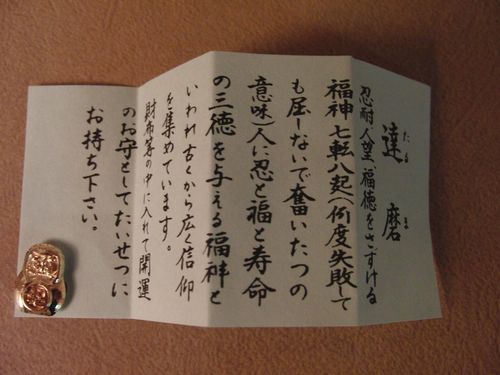 達磨
だるま
忍耐 人望 福徳をさずける
福神 七転八起(何度失敗して
も屈しないで奮いたつの
意味)人に忍と福と寿命
の三徳を与える福神と
いわれ古くから広く信仰
を集めています。
財布等の中に入れて開運
のお守としてたいせつに
お持ち下さい。